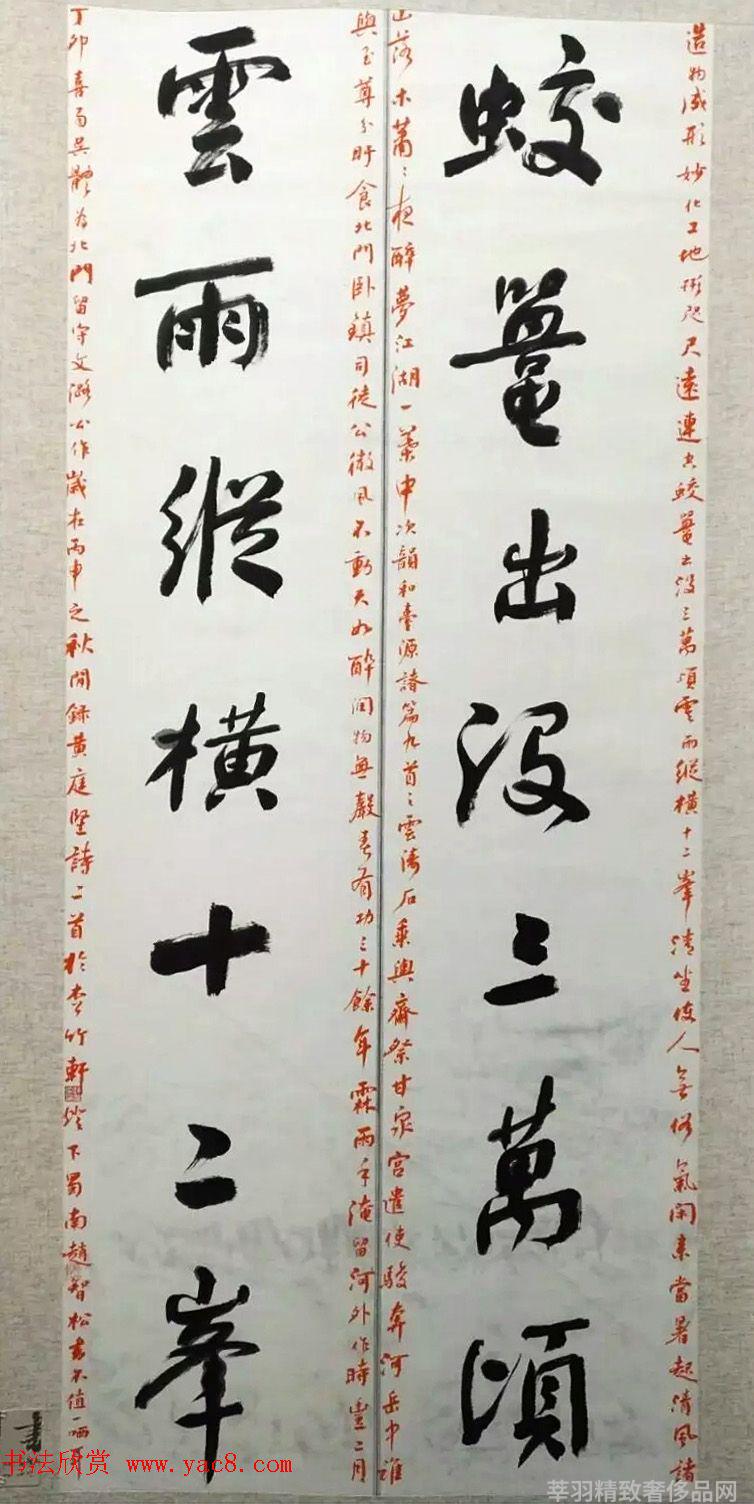 造物成形妙化工地形咫尺遠連空蛟鼉出沒三萬頃雲雨縱橫十二峯清坐使人無俗氣閑來當暑起清風諸
蛟鼉出沒三萬頃
山落木蕭〻夜醉夢江湖一葉中次韻和臺源諸篇九首之雲濤石乘輿齋祭甘泉宮遣使駿奔河岳中誰
與至尊分旰食北門臥鎮司徒公微風不動天如醉潤物無聲春有功三十餘年霖雨手淹留河外作時豐二月
雲雨縱橫十二峯
丁卯喜雨吳體為北門留守文潞公作歲在丙申之秋閒錄黃庭堅詩二首於竹軒燈下蜀南趙智松書不值一哂
书法欣赏 www.yac8.com
莘羽精致奢侈品网